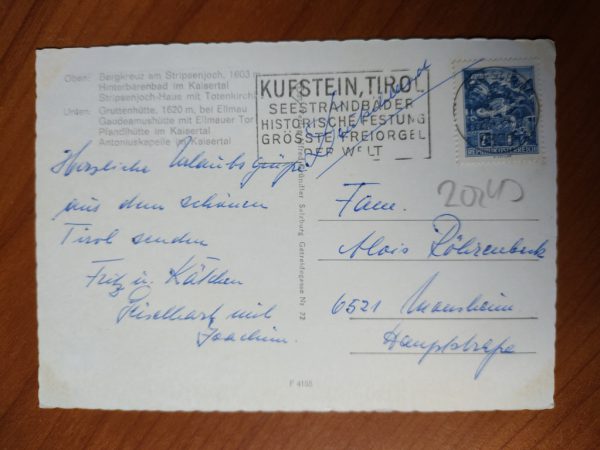 Oben: Bergkreuz am Stripsenjoch, 1603
Hinterbarenbad im Kaisertal
Stripsenjoch-Haus mit Totenkirchl
Unten: Gruttenhütte, 1620 m, bei Ellmau
Gaudeamushütte mit Ellmauer Tor
Pfandlhütte im Kaisertal
Antoniuskapelle im Kaisertal
KUFSTEIN, TIROL
SEESTRANDBÄDER
HISTORISCHE FESTUNG
GRÖSSTE FREIORGEL
DER WELT
REPUBLIK ÖSTERREICH
Herzliche Urlaubsgrüße
aus dem schönen
Tirol senden
Fritz u. Käthchen
mit
Joachim.
Salzburg Getreidegasse Nr. 22
2024D
Fam.
Alois Röhrenbeck
6521 Monsheim
Hauptstraße
F 4155